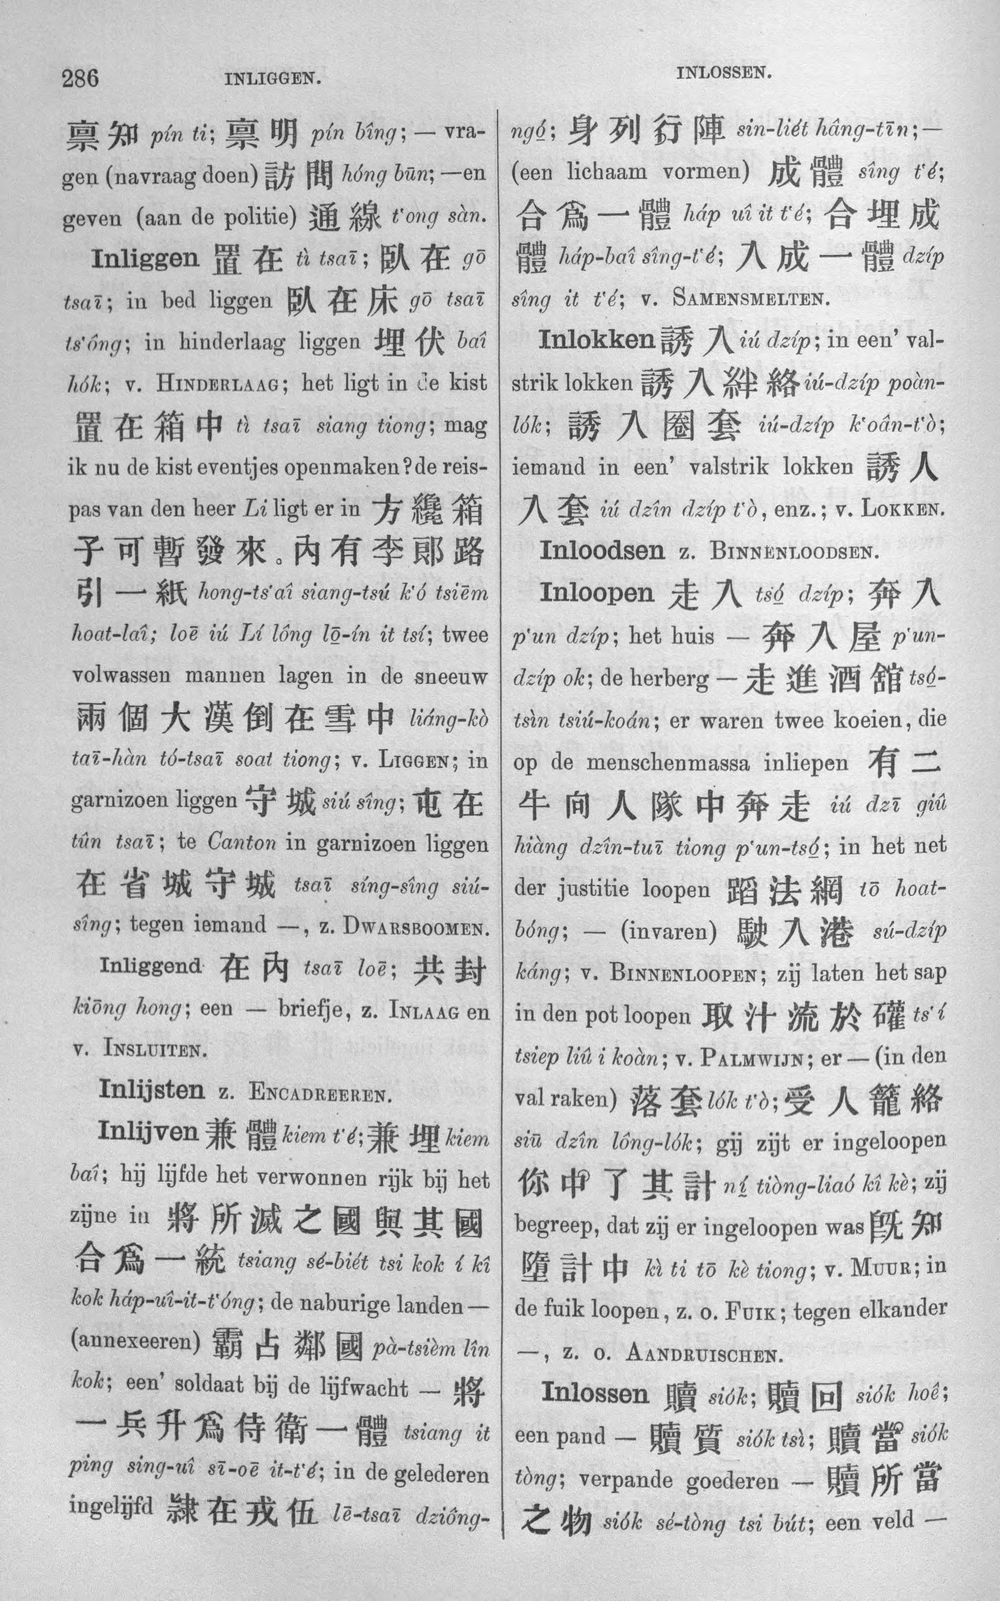 286
INLIGGEN.
INLOSSEN.
稟知 pín ti; 稟明 pín bîng; — vra-
gen (navraag doen) 訪問 hóng būn; —en
geven (aan de politie) 通線 t‘ong sàn.
Inliggen 置在 tì tsaī; 臥在 gō
tsaī; in bed liggen 臥在床 gō tsaī
ts‘ông; in hinderlaag liggen 埋伏 baî
hók; v. HINDERLAAG; het ligt in de kist
置在箱中 tì tsaī siang tiong; mag
ik nu de kist eventjes openmaken? de reis-
pas van den heer Li ligt er in 方纔箱
子可暫發來。內有李郞路
引一紙 hong-ts‘aî siang-tsú k‘ó tsiēm
hoat-laî; loē iú Lí lông lō-ín it tsí; twee
volwassen mannen lagen in de sneeuw
兩個大漢倒在雪中 liáng-kò
taī-hàn tó-tsaī soat tiong; v. LIGGEN; in
garnizoen liggen 守城 siú sîng; 屯在
tûn tsaī; te Canton in garnizoen liggen
在省城守城 tsaī síng-sîng siú-
sîng; tegen iemand —, z. DWARSBOOMEN.
Inliggend 在內 tsaī loē; 共封
kiōng hong; een — briefje, z. INLAAG en
v. INSLUITEN.
Inlijsten z. ENCADREEREN.
Inlijven 兼體 kiem t‘é; 兼埋 kiem
baî; hij lijfde het verwonnen rijk bij het
zijne in 將所滅之國與其國
合爲一統 tsiang sé-biét tsi kok í kî
kok háp-uî-it-t‘óng; de naburige landen —
(annexeeren) 霸占鄰國 pà-tsièm lîn
kok; een’ soldaat bij de lijfwacht — 將
一兵升爲侍衛一體 tsiang it
ping sing-uî sī-oē it-t‘é; in de gelederen
ingelijfd 隸在戎伍 lē-tsaī dziông-
ngó; 身列行陣 sin-liét hâng-tīn; —
(een lichaam vormen) 成體 sîng t‘é;
合爲一體 háp uî it t‘é; 合埋成
體 háp-baî sîng-t‘é; 入成一體 dzíp
sîng it t‘é; v. SAMENSMELTEN.
Inlokken 誘入 iú dzíp; in een’ val-
strik lokken 誘入絆絡 iú-dzíp poàn-
lók; 誘入圈套 iú-dzíp k‘oân-t‘ò;
iemand in een’ valstrik lokken 誘人
入套 iú dzîn dzíp t‘ò, enz.; v. LOKKEN.
Inloodsen z. BINNENLOODSEN.
Inloopen 走入 tsó dzíp; 奔入
p‘un dzíp; het huis — 奔入屋 p‘un-
dzíp ok; de herberg — 走進酒舘 tsó-
tsìn tsiú-koán; er waren twee koeien, die
op de menschenmassa inliepen 有二
牛向人隊中奔走 iú dzī giû
hiàng dzîn-tuī tiong p‘un-tsó; in het net
der justitie loopen 蹈法網 tō hoat-
bóng; — (invaren) 駛入港 sú-dzíp
káng; v. BINNENLOOPEN; zij laten het sap
in den pot loopen 取汁流於礶 ts‘í
tsiep liû i koàn; v. PALMWIJN; er — (in den
val raken) 落套 lók t‘ò; 受人籠絡
siū dzîn lông-lók; gij zijt er ingeloopen
你中了其計 ní tiòng-liaó kî kè; zij
begreep, dat zij er ingeloopen was 旣知
墮計中 kì ti tō kè tiong; v. MUUR; in
de fuik loopen, z. o. FUIK; tegen elkander
—, z. o. AANDRUISCHEN.
Inlossen 贖 siók; 贖回 siók hoê;
een pand — 贖質 siók tsì; 贖當 siók
tòng; verpande goederen — 贖所當
之物 siók sé-tòng tsi bút; een veld —